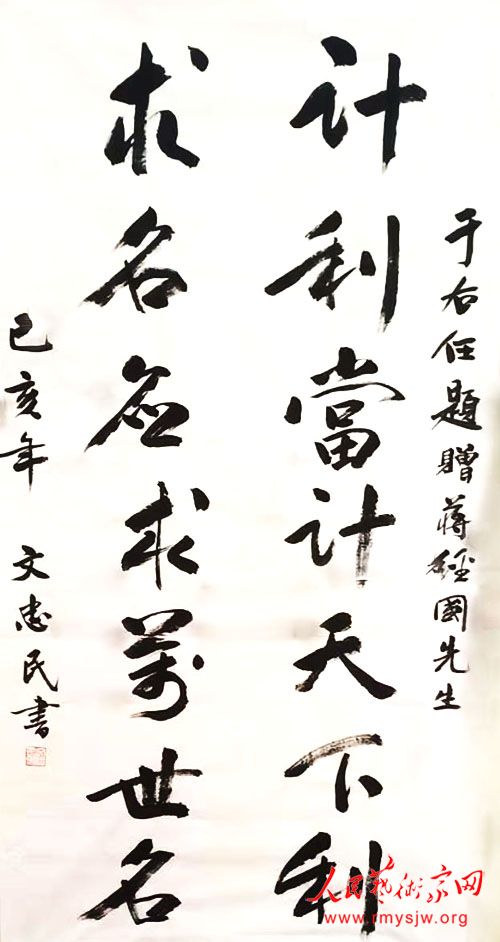 于右任題贈蔣經國先生
計利當計天下利
求名應求萬世名
己亥年 文忠民書
人民藝術家网
www.rmysjw.org